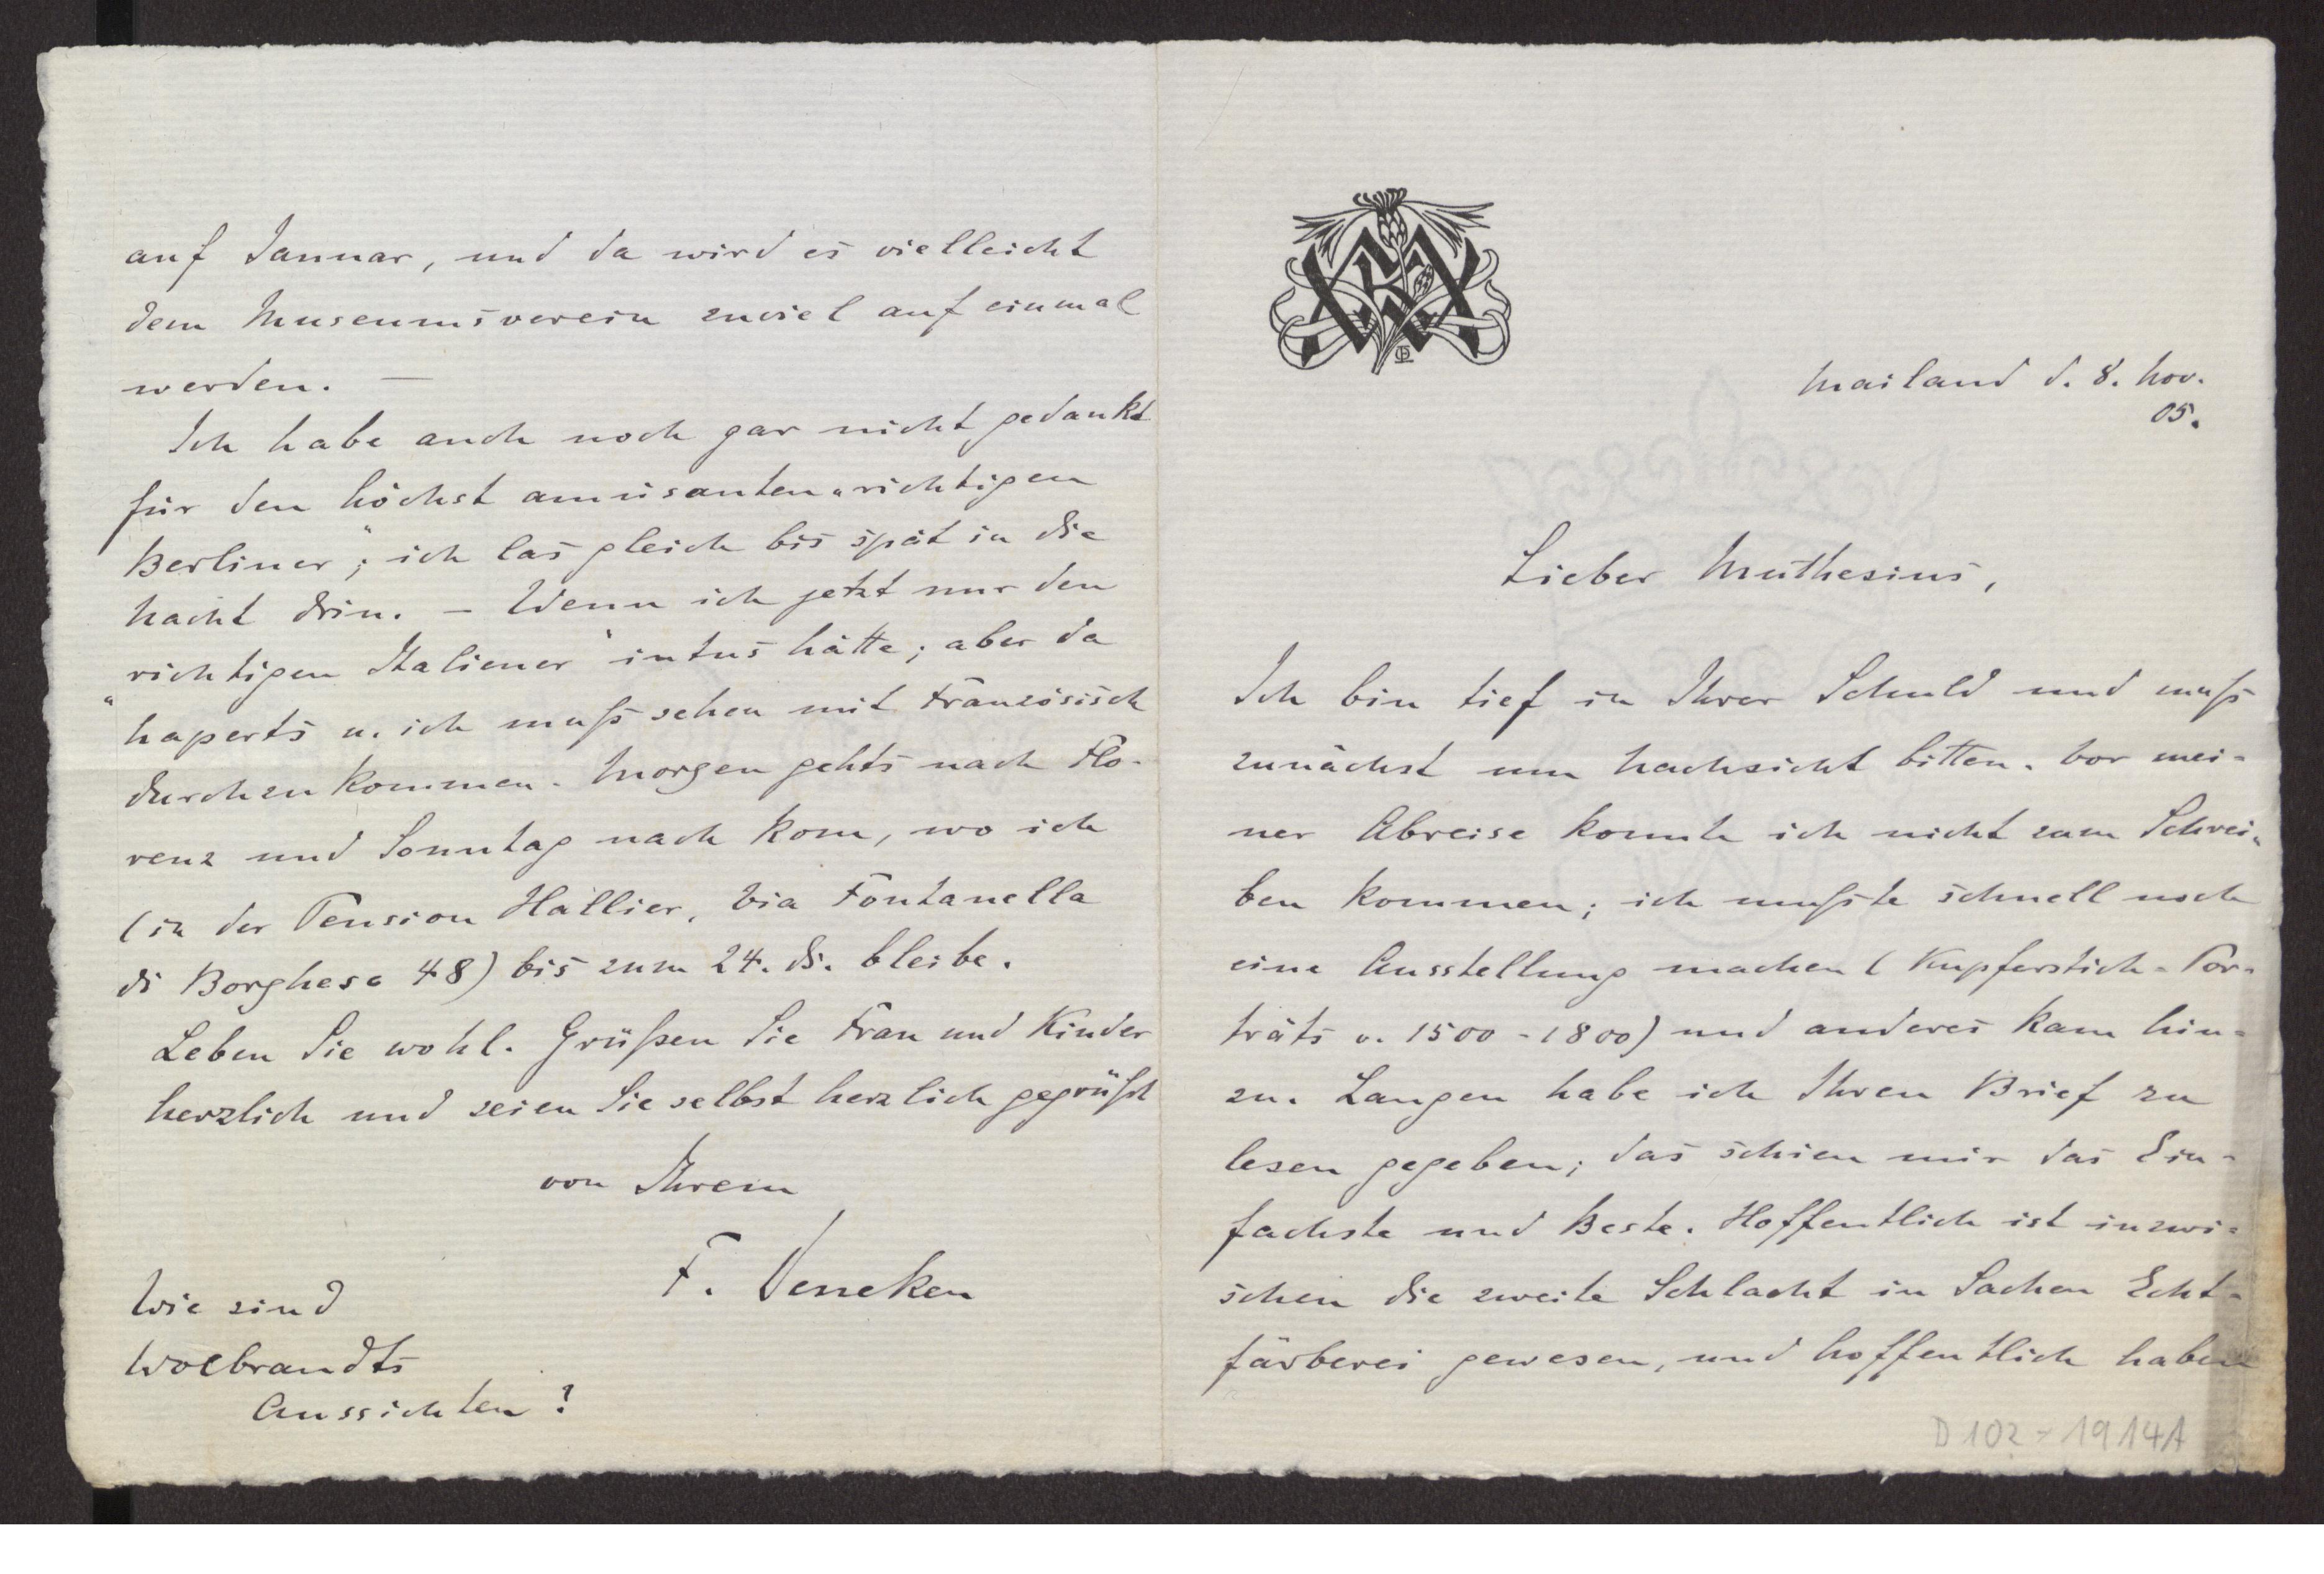 Mailand d. 8. Nov.
05.
Lieber Muthesius,
Ich bin tief in Ihrer Schuld und muß
zunächst um Nachsicht bitten. Vor mei-
ner Abreise konnte ich nicht zum Schrei-
ben kommen; ich mußte schnell noch
eine Ausstellung machen (Kupferstich-Por-
träts v. 1500-1800) und anderes kam hin-
zu. Langen habe ich Ihren Brief zu
lesen gegeben; das schien mir das Ein-
fachste und Beste. Hoffentlich ist inzwi-
schen die zweite Schlacht in Sachen Echt-
färberei gewesen, und hoffentlich haben
D 102-1914A
auf Januar, und da wird es vielleicht
dem Museumsverein zuviel auf einmal
werden. —
Ich habe auch noch gar nicht gedankt
für den höchst amüsanten „richtigen
Berliner“; ich las gleich bis spät in die
Nacht drin. — Wenn ich jetzt nur den
„richtigen Italiener“ intus hätte; aber da
haperts u. ich muß sehen mit Französisch
durchzukommen. Morgen gehts nach Flo-
renz und Sonntag nach Rom, wo ich
(in der Pension Hallier, Via Fontanella
di Borghese 48) bis zum 24. ds. bleibe.
Leben Sie wohl. Grüßen Sie Frau und Kinder
herzlich und seien Sie selbst herzlich gegrüßt
von Ihrem
F. Deneken
Wie sind
Wolbrandts
Aussichten?